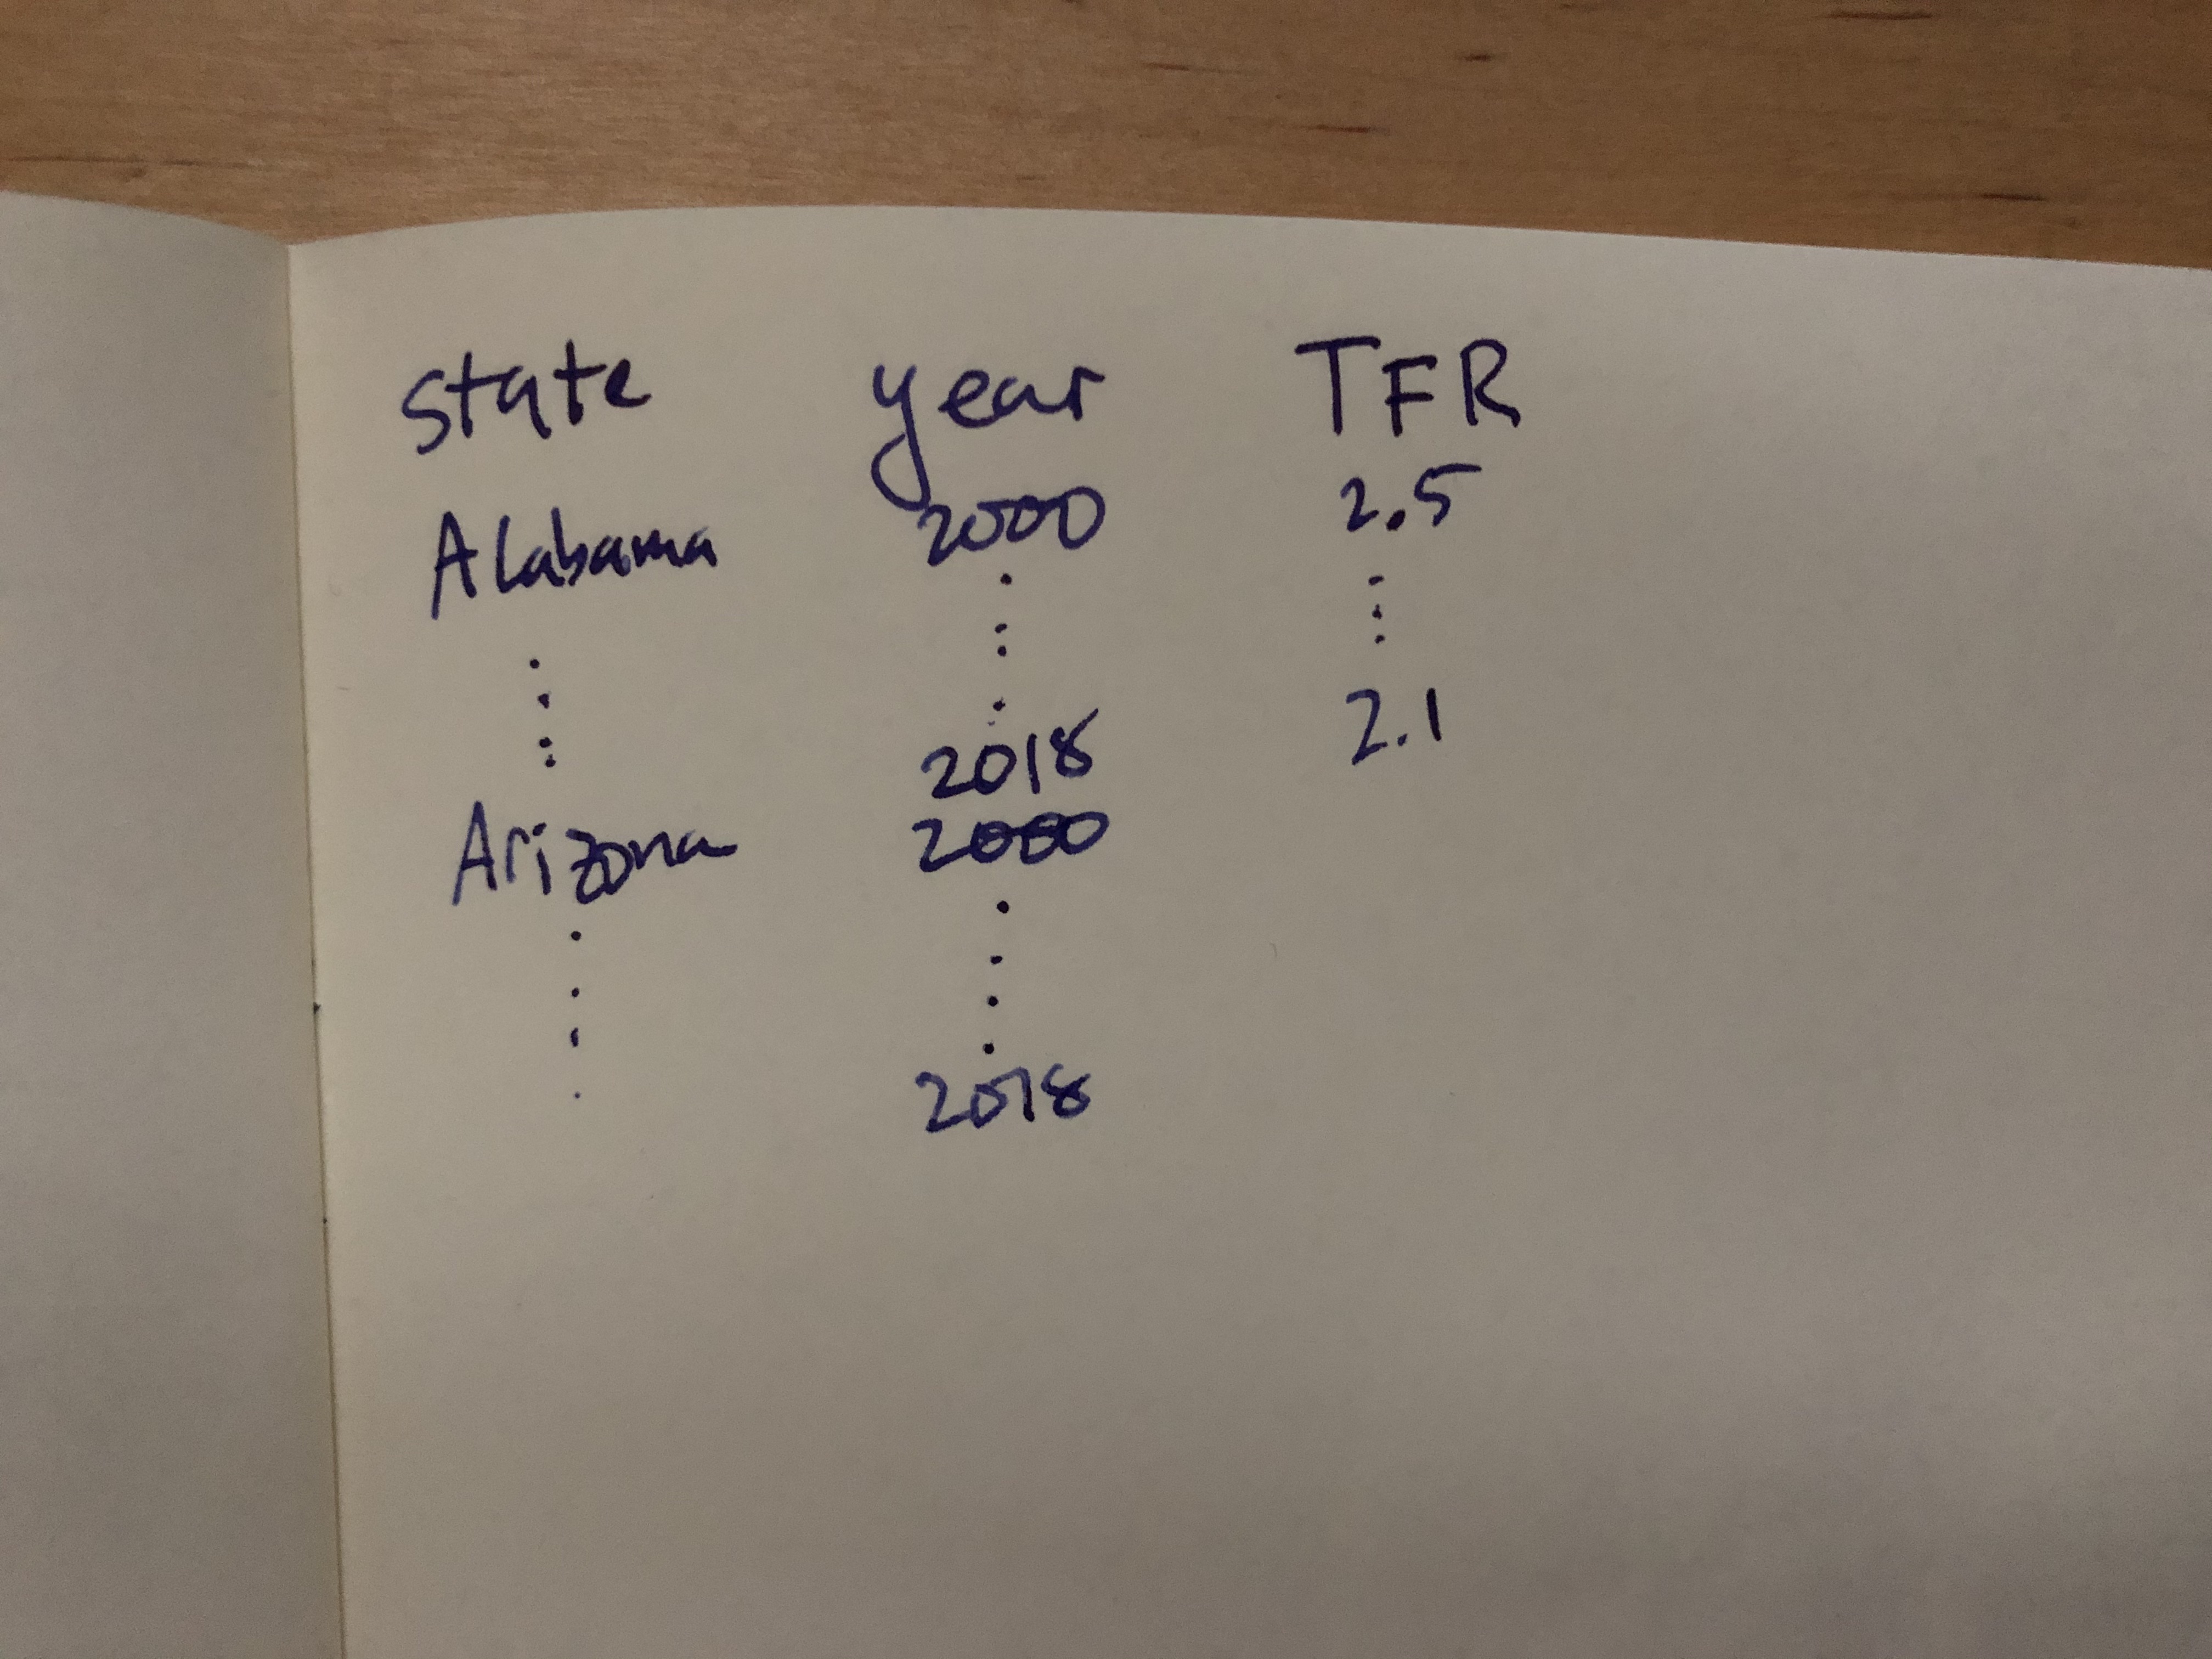 state year TFR
Alabama 2000 2.5
2018 2.1
Arizona 2000
2018